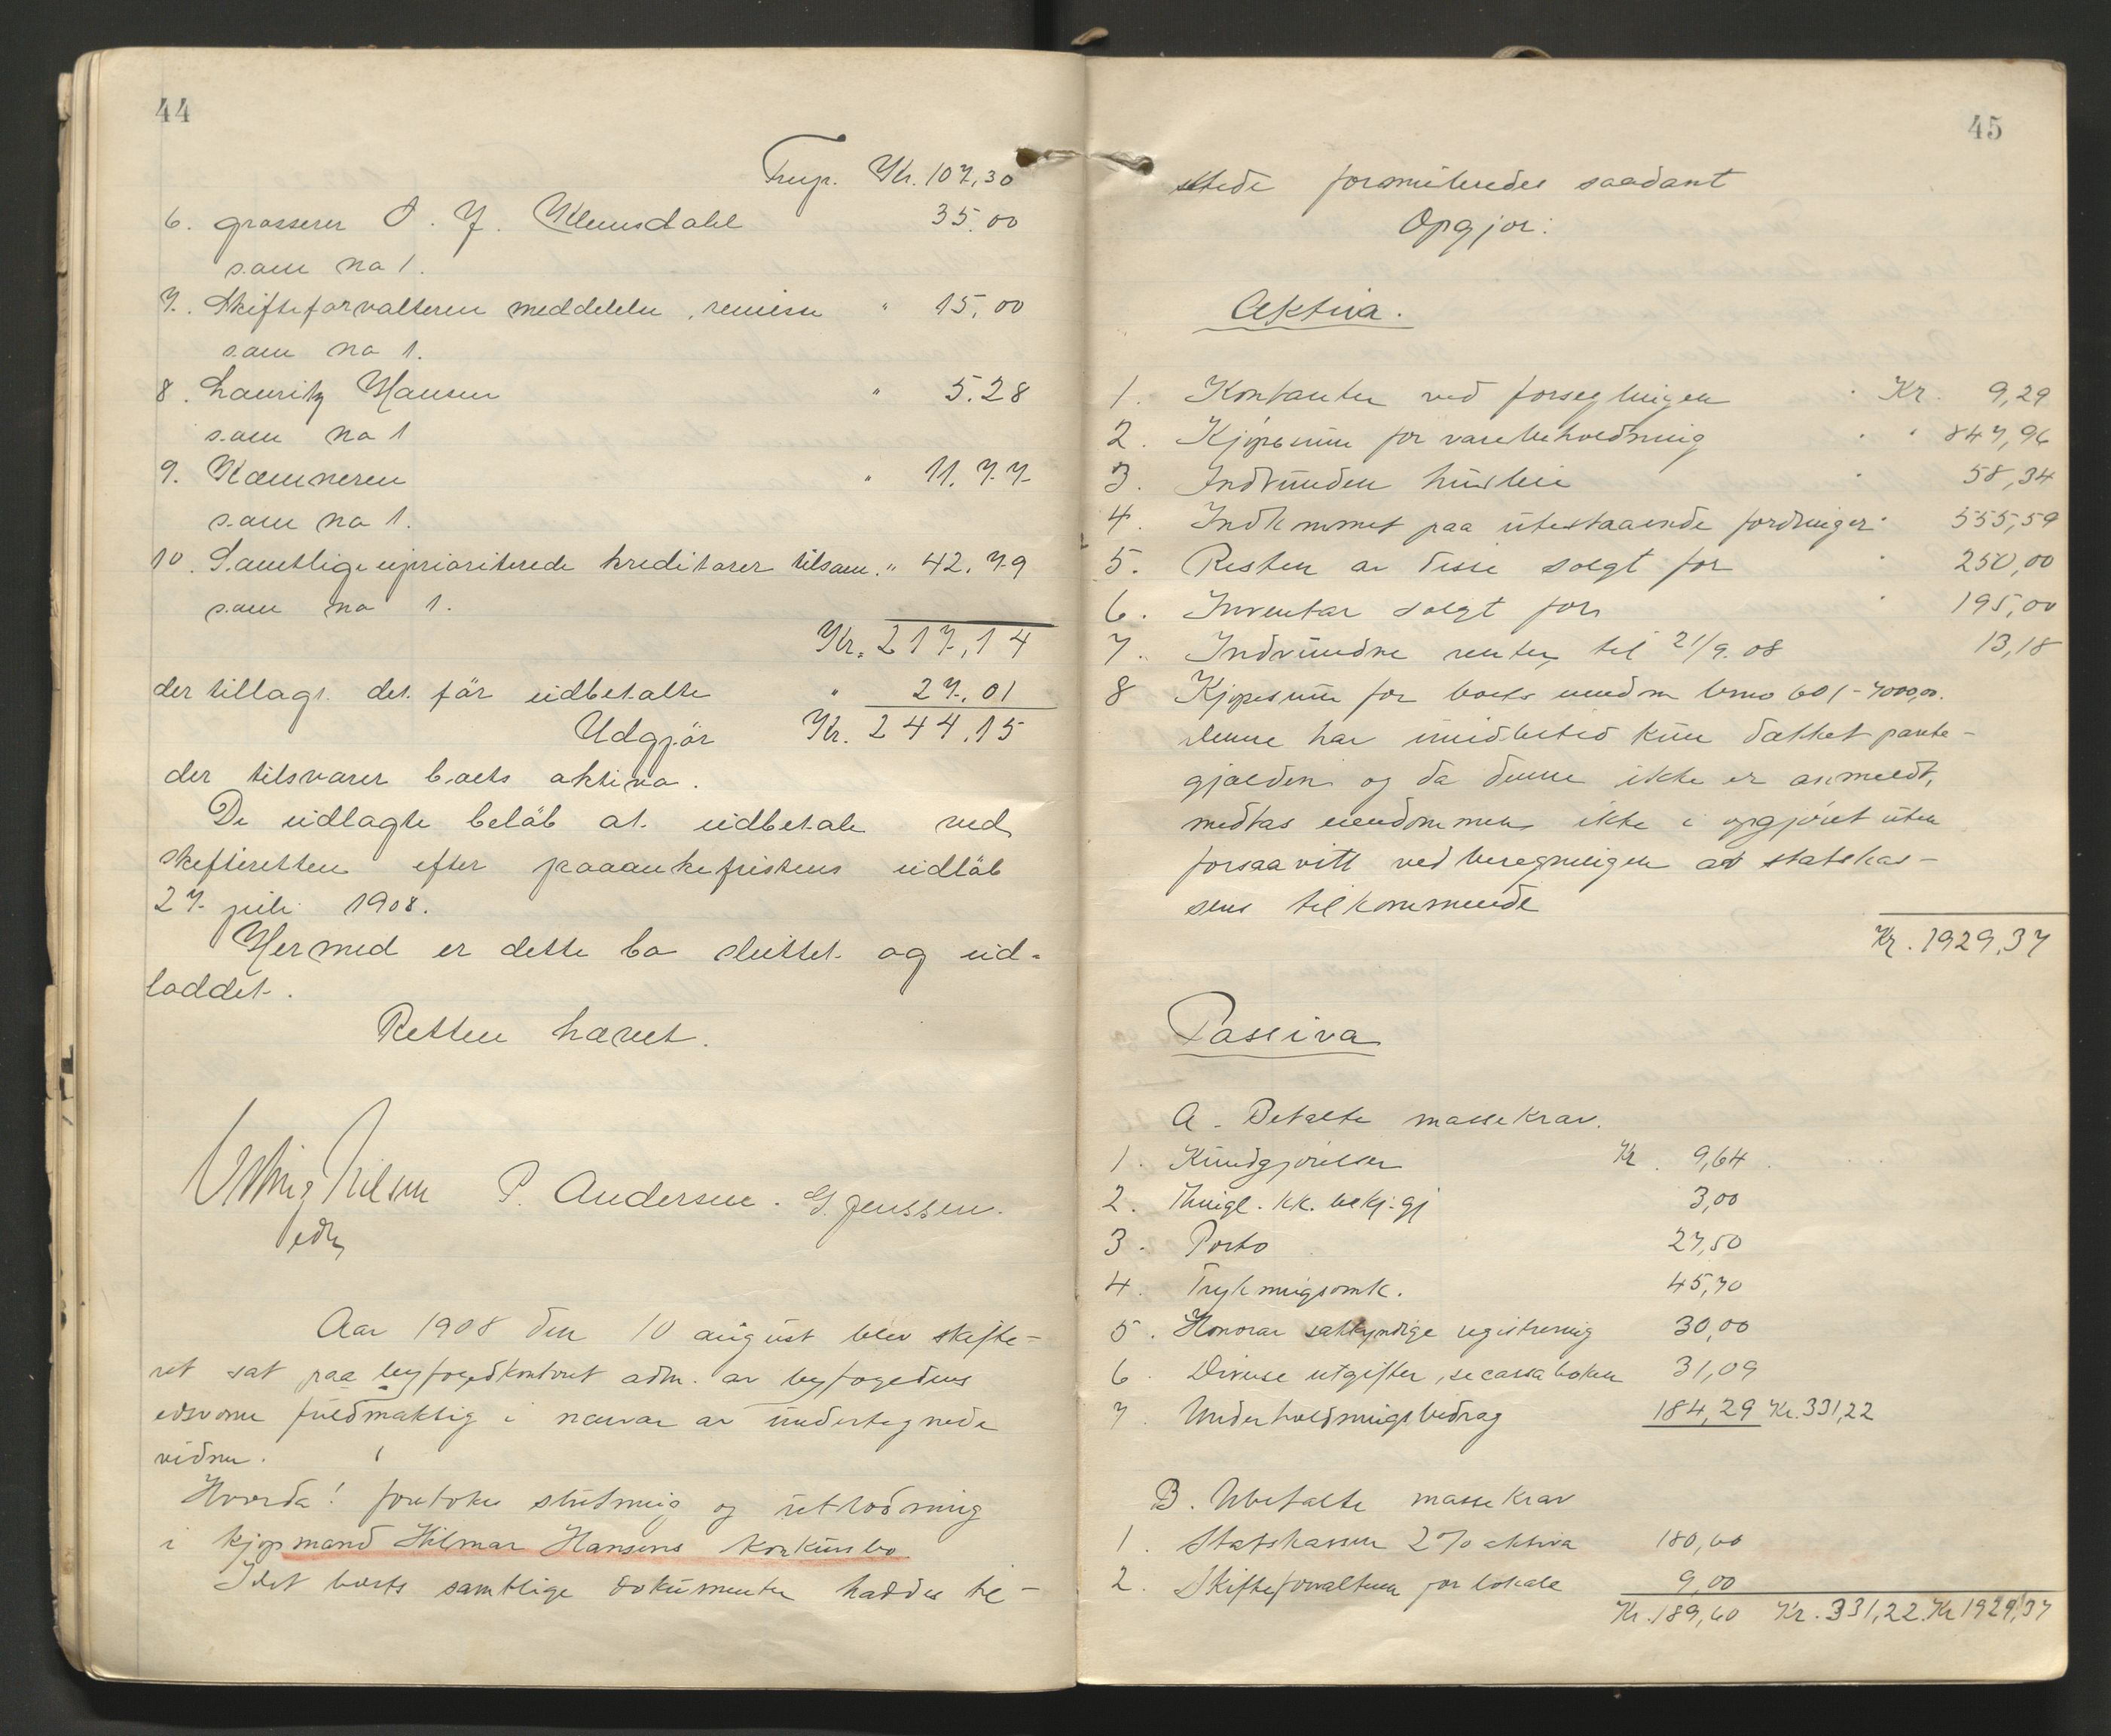 44
Trsp. Kr. 107,30
6. grosserer O. J. Klemsdahl 35.00
som no 1.
7. Skifteforvalteren meddelelse, remisse " 15,00
som no 1.
8. Lauritz Hansen " 5.28
som no 1
9. Kæmneren " 11.77
som no 1.
10. Samtlige uprioriterede kreditorer tilsam. " 42.79
som no 1.
Kr. 217,14
der tillagt det før udbetalte " 27,01
Udgjør Kr. 244,15
der tilsvarer boets aktiva.
De udlagte beløb at udbetale ved
skifteretten efter paaankefristens udløb
27 juli 1908.
Hermed er dette bo sluttet og ud-
loddet.
Retten hævet.
Nilsen P. Andersen. G. Jenssen.
edsv
Aar 1908 den 10 august blev skifte-
ret sat paa byfogedkontoret adm. av byfogedens
edsvorne fuldmæktig i nærvær av undertegnede
vidner.
Hvorda! foretokes slutning og utlodning
i kjøpmand Hilmar Hansens konkursbo
Idet boets samtlige dokumenter haddes til-
45
stede formuleredes saadant
Opgjør:
Aktiva.
1. Kontanter ved forseglingen Kr. 9,29
2. Kjøpesum for varebeholdning " 847,96
3. Indvunden husleie 58,34
4. Indkommet paa utestaaende fordringer 555,59
5. Resten av disse solgt for 250,00
6. Inventar solgt for 195,00
7. Indvundne renter til 21/9.08 13,18
8 Kjøpesum for boets eiendom bno 601 - 7000,00.
denne har imidlertid kun dækket pante-
gjælden og da denne ikke er anmeldt,
medtas eiendommen ikke i opgjøret uten
forsaavitt ved beregningen av statskas-
sens tilkommende
Kr. 1929,37
Passiva
A. Betalte massekrav.
1. Kundgjørelser Kr. 9,64
2. Thingl. kk. bekj.gj 3,00
3. Porto 27,50
4. Trykningsomk. 45,70
5. Honorar sakkyndige registrering 30,00
6. Diverse utgifter, se cassaboken 31,09
7. Underholdningsbidrag 184,29 Kr. 331,22
B. Ubetalte massekrav
1. Statskassen 2% aktiva 180,60
2. Skifteforvalteren for lokale 9,00
Kr. 189,60 Kr. 331,22. Kr 1929,37